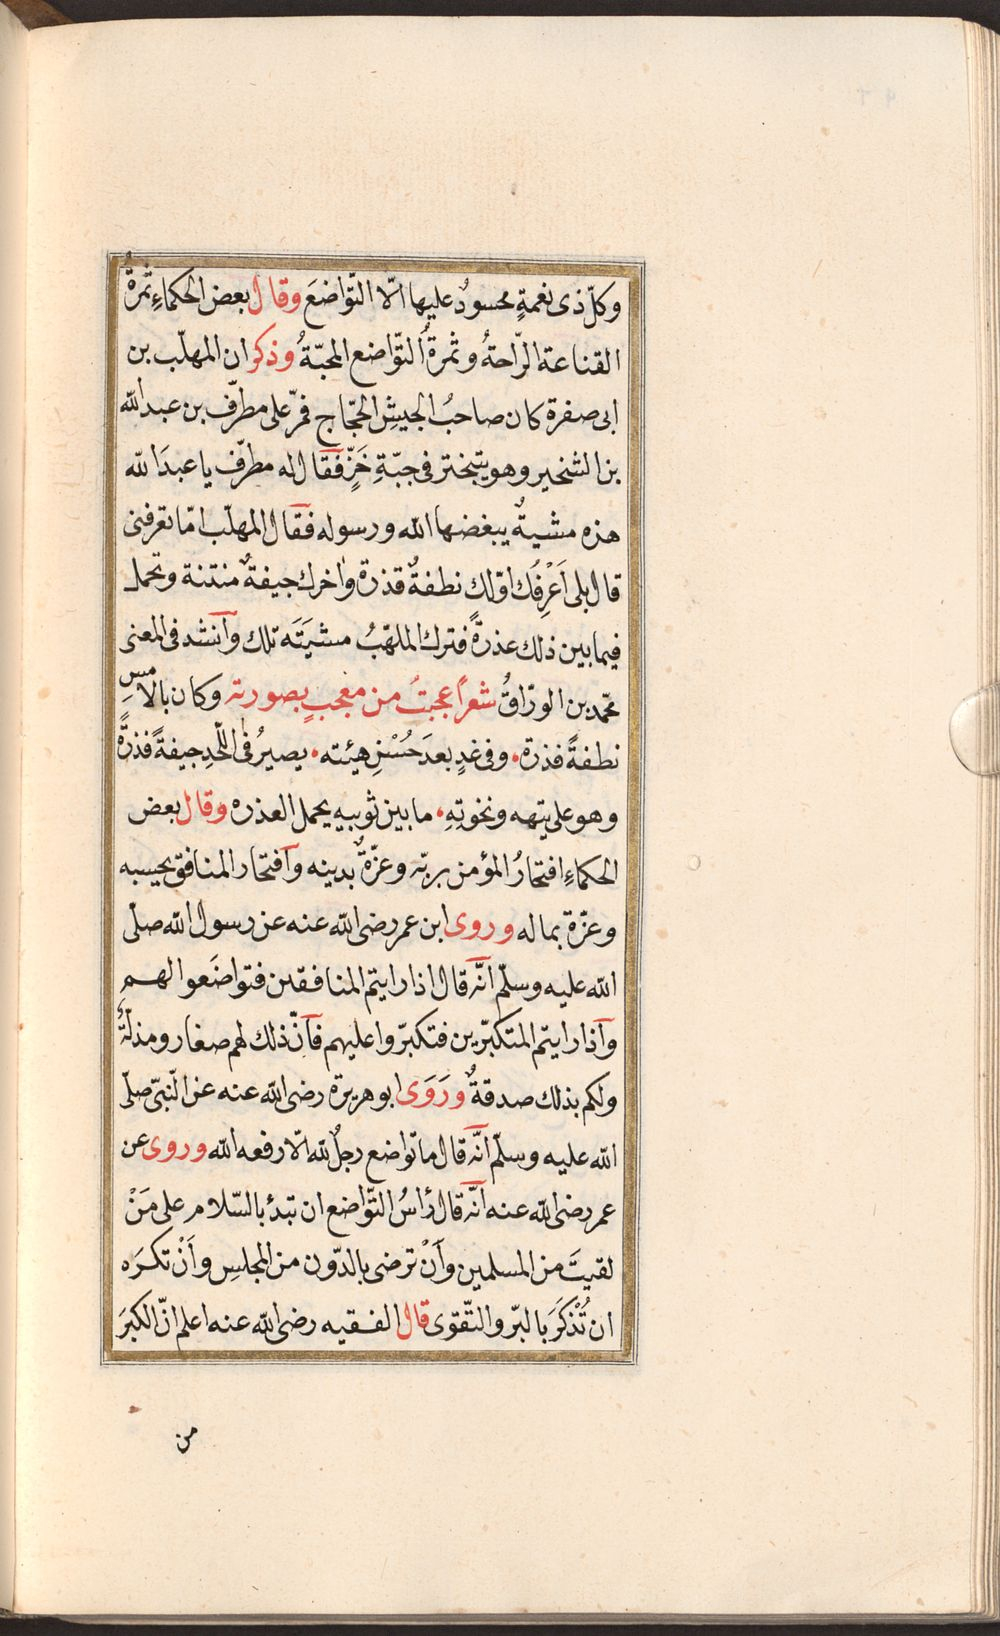 وكلّ ذى نعمةٍ محسودٌ عليها الّا التّواضعَ وقال بعض الحكماءِ ثمرةُ
القناعة الرّاحةُ وثمرةُ التّواضع المحبّةُ وذكر ان المهلّب بن
ابى صفرة كان صاحبُ الجيشِ الحجّاج فمرّ على مطرّف بن عبد الله
بن الشخير وهو يتبختر فى جبّةِ خَزٍّ فقال له مطرّف يا عبدَ الله
هذه مشيةٌ يبغضها الله ورسوله فقال المهلّب امّا تعرفنى
قال بلى اَعْرِفُك اوّلك نطفةٌ قذرة واٰخرك جيفةٌ منتنة وتحمل
فيما بين ذلك عذرةً فترك الملهّبُ مشيَتَه تلك وانشد فى المعنى
محمّد بن الورّاقُ شعراً عجبتُ من معجبٍ بصورته وكان بالامسِ
نطفةً فذرة. وفى غدٍ بعدَ حُسْنِ هيئته. يصيرُ فى اللّحدِ جيفةً فذرةً
وهو على تيهه ونخوتِهِ. ما بين ثوبيه يحمل العذره وقال بعض
الحكماءِ افتحارُ المؤمن بربّه وعزّةٌ بدينه وافتحار المنافق بحسبه
وعزّة بماله وروى ابن عمر رضى الله عنه عن رسول الله صلّى
الله عليه وسلّم انّه قال اذا رايتم المنافقين فتواضَعوا لهم
واذا رايتم المتكبّرين فتكبّروا عليهم فانّ ذلك لهم صغار ومذلّةٌ
ولكم بذلك صدقةٌ ورَوَى ابو هريرة رضى الله عنه عن النّبىّ صلّى
الله عليه وسلّم انّه قال ما تواضع رجلٌ لله الّا رفعه الله وروى عن
عمر رضى الله عنه انّه قال رأسُ التّواضع ان تبدأ بالسّلام على مَنْ
لقيتَ من المسلمين وأنْ ترضى بالدّون من المجلسِ وأنْ تكرَه
ان تُذْكَرَ بالبرّ والتّقوى قال الفقيه رضى الله عنه اعلم انّ الكبرَ
من